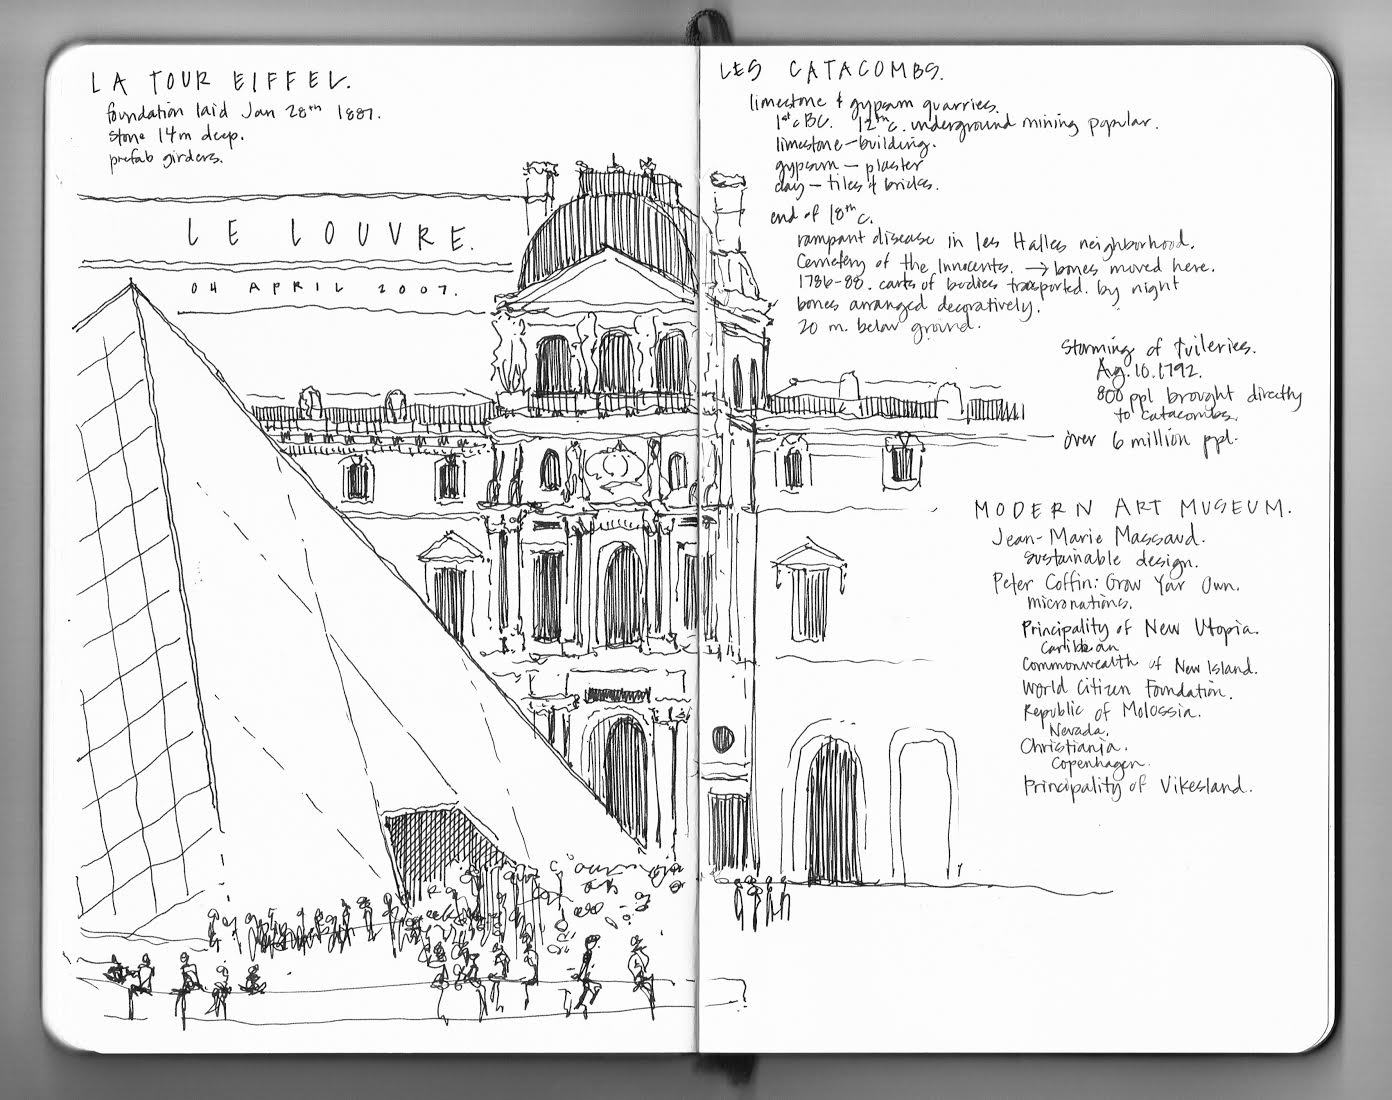 LA TOUR EIFFEL.
foundation laid Jan 28th 1887.
stone 14m deep.
prefab girders.
LE LOUVRE.
04 APRIL 2007.
LES CATACOMBS.
limestone & gypsum quarries.
1st c BC. 12th c. underground mining popular.
limestone - building.
gypsum - plaster
clay - tiles & bricks.
end of 18th c.
rampant disease in les Halles neighborhood.
Cemetery of the Innocents. → bones moved here.
1786-88. carts of bodies transported by night
bones arranged decoratively.
20 m. below ground.
Storming of Tuileries.
Aug. 10. 1792.
800 ppl brought directly
to catacombs.
over 6 million ppl.
MODERN ART MUSEUM.
Jean-Marie Massaud.
sustainable design.
Peter Coffin: Grow Your Own.
micronations.
Principality of New Utopia.
Caribbean
Commonwealth of New Island.
World Citizen Foundation.
Republic of Molossia.
Nevada.
Christiania.
Copenhagen.
Principality of Vikesland.